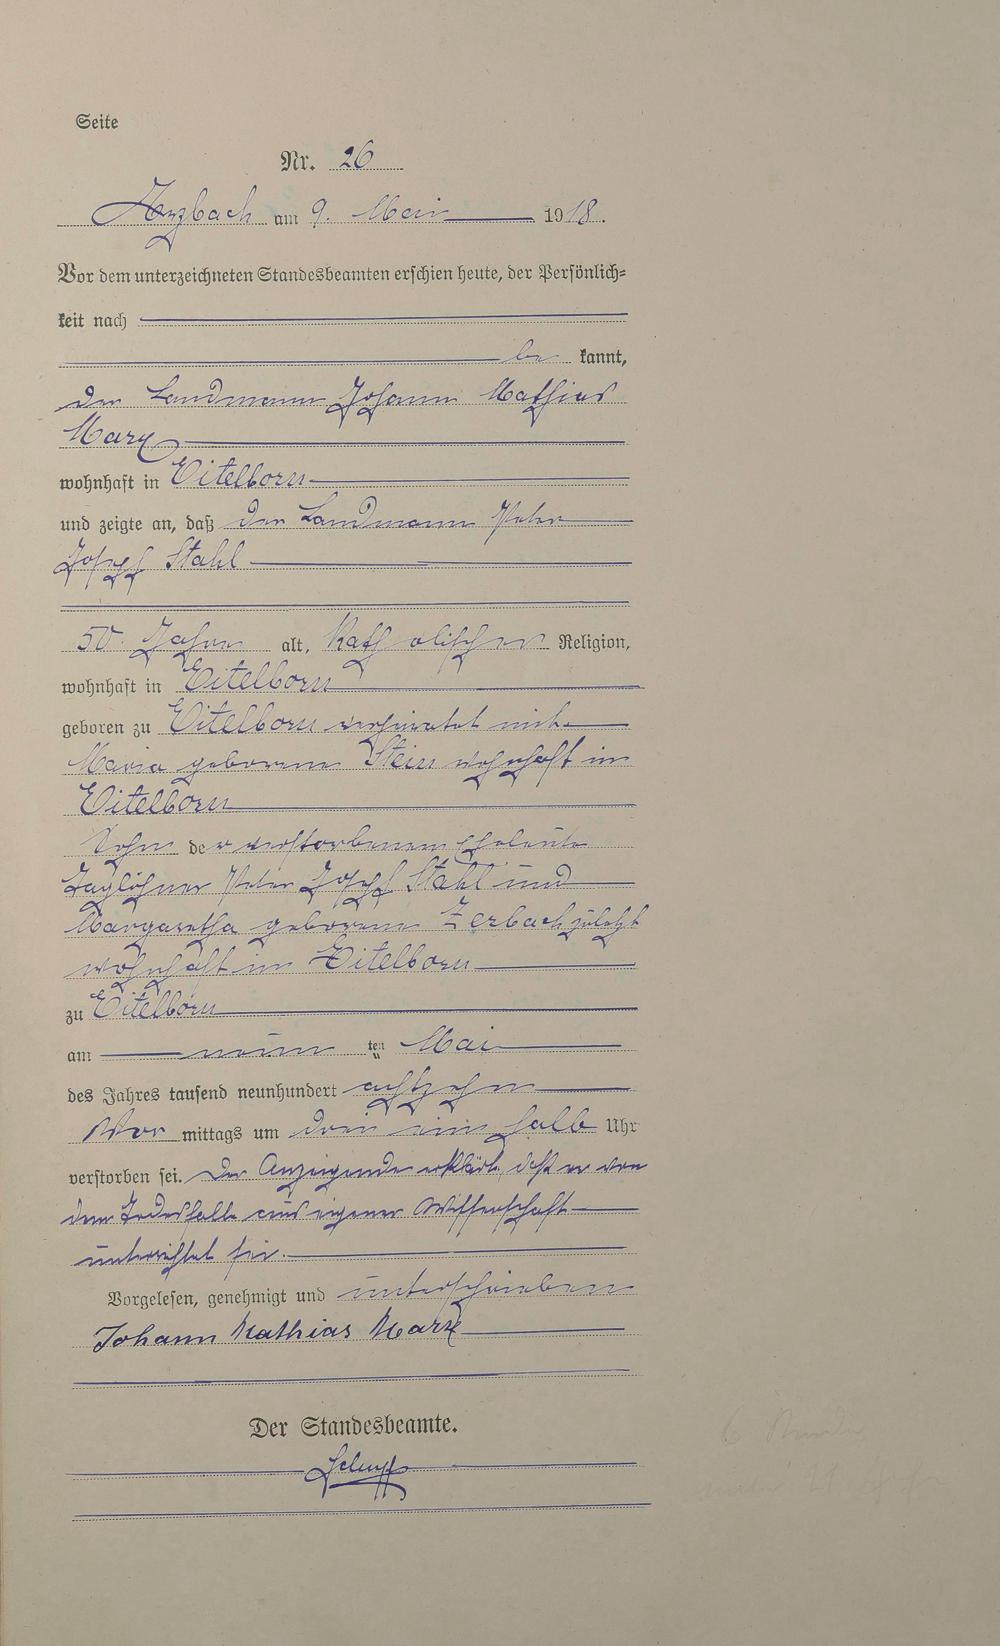 Seite
Nr. 26
Arzbach am 9. Mai 1918.
Vor dem unterzeichneten Standesbeamten erschien heute, der Persönlich=
keit nach
be kannt,
der Landmann Johann Mathias
Marx
wohnhaft in Eitelborn
und zeigte an, daß der Landmann Peter
Josef Stahl
50 Jahre alt, Kath olischer Religion,
wohnhaft in Eitelborn
geboren zu Eitelborn verheiratet mit
Maria geborene Stein wohnhaft in
Eitelborn
Sohn der verstorbenen Eheleute
Taglöhner Peter Josef Stahl und
Margaretha geborene Zerbach zuletzt
wohnhaft in Eitelborn
zu Eitelborn
am neun ten Mai
des Jahres tausend neunhundert achtzehn
Vor mittags um drei ein halb Uhr
verstorben sei. Der Anzeigende erklärte, daß er von
dem Todesfalle aus eigener Wissenschaft
unterrichtet sei.
Vorgelesen, genehmigt und unterschrieben
Johann Mathias Marx
Der Standesbeamte.